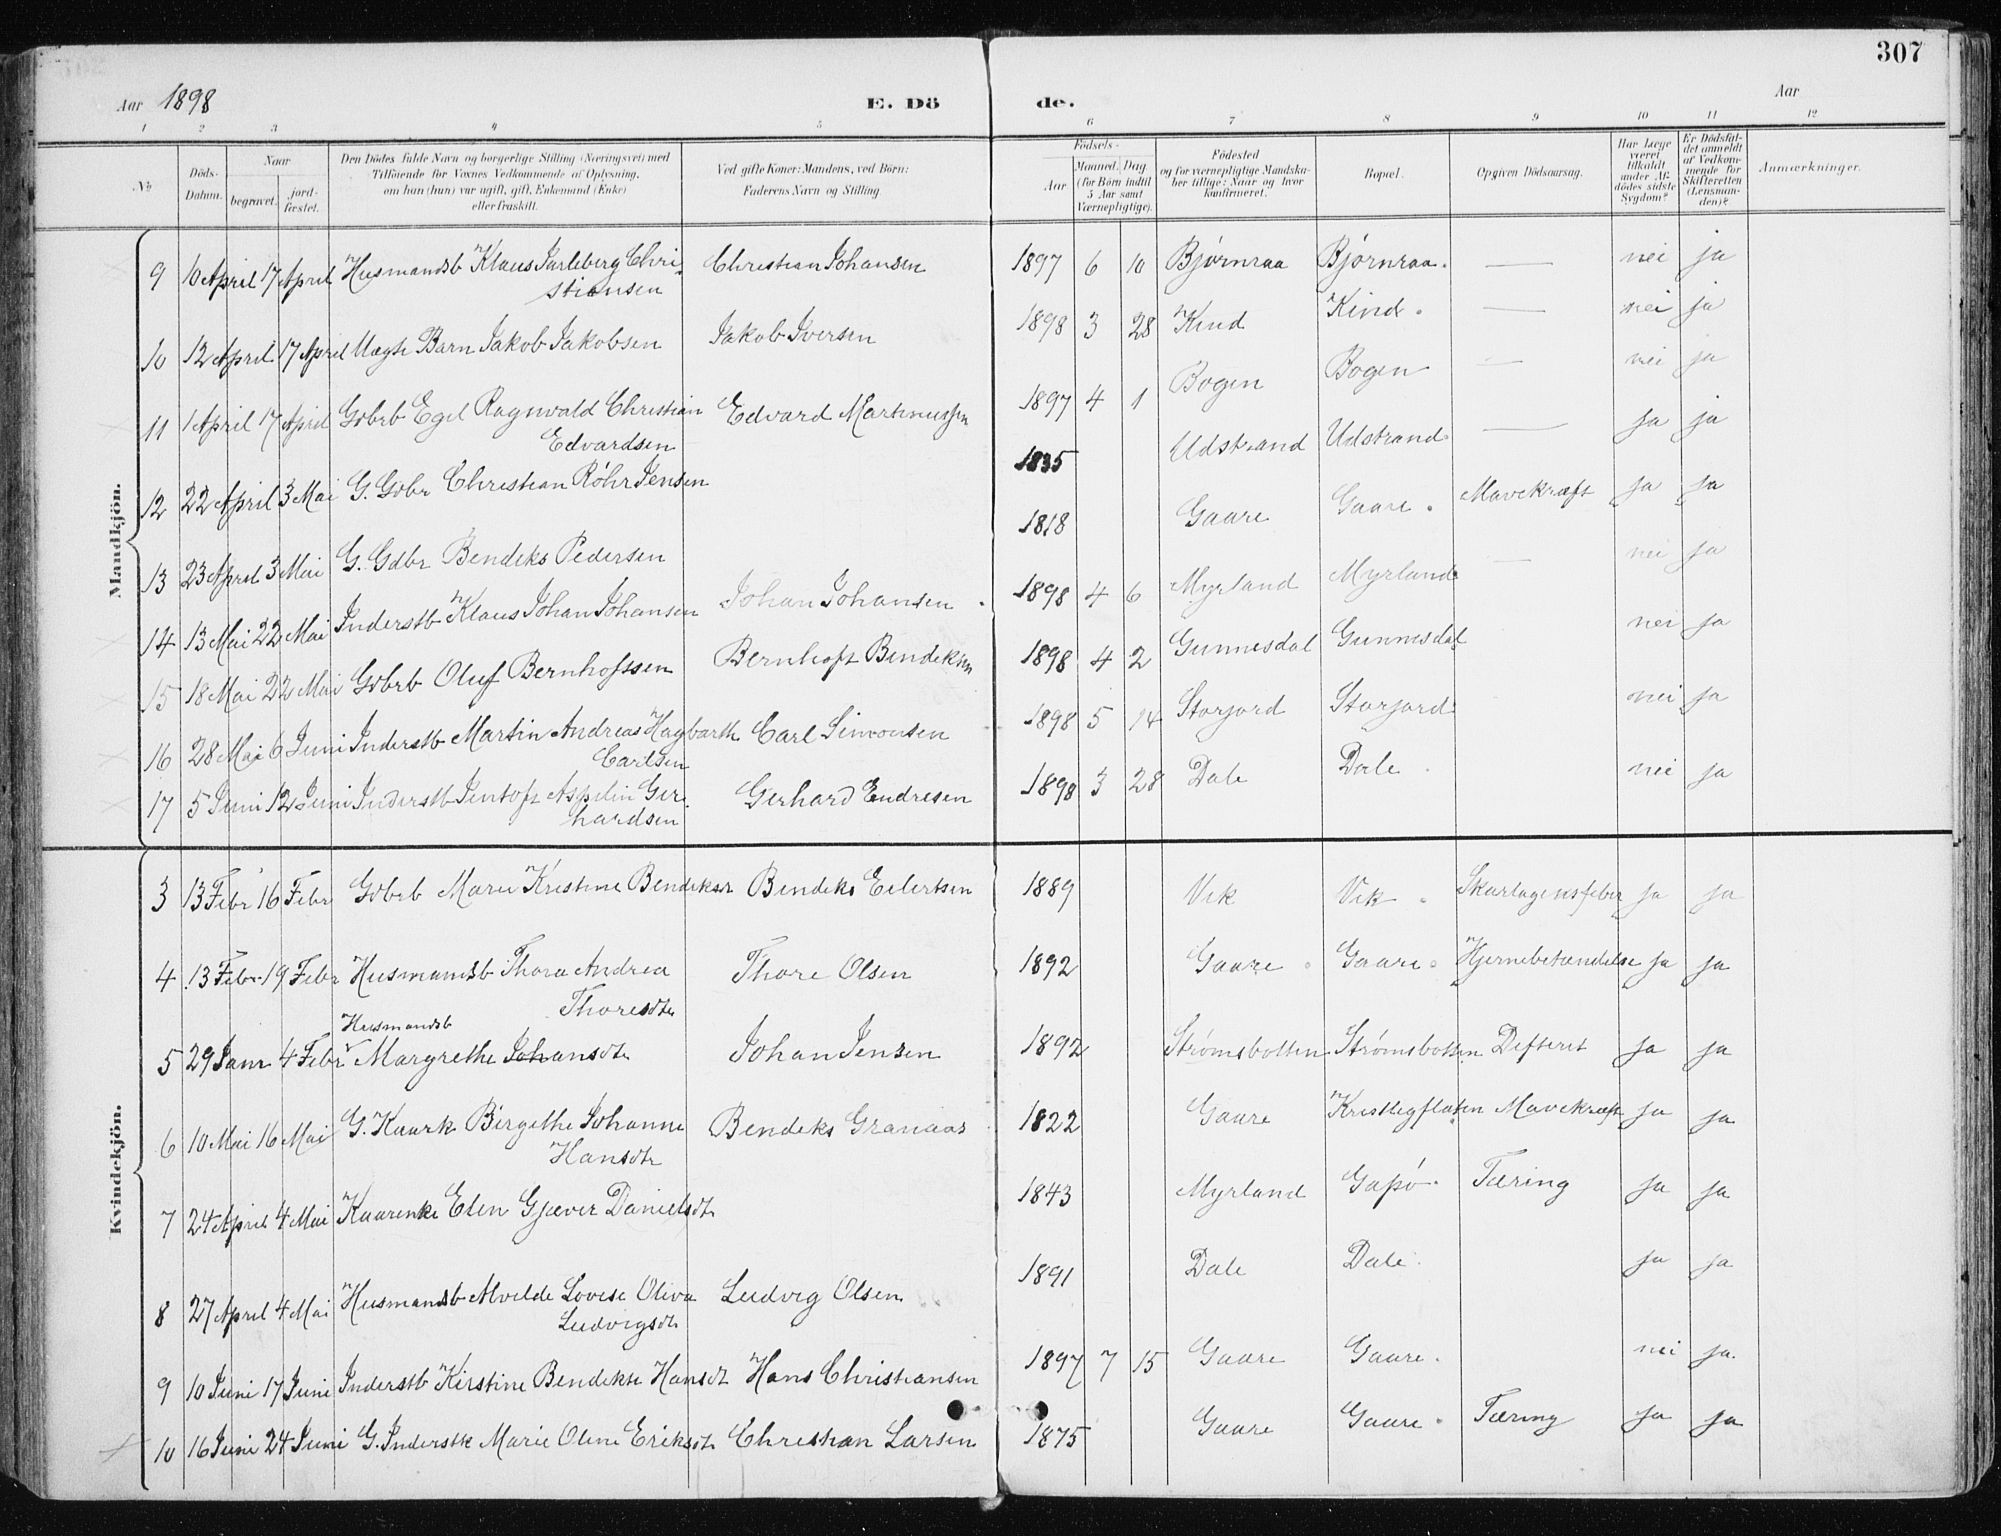 307
Aar 1898
E. Dö de.
Aar
1 2 3 4 5 6 7 8 9 10 11 12
No
Döds-Datum.
Naar begravet. jord-fæstet.
Den Dödes fulde Navn og borgerlige Stilling (Næringsvei) med Tilföiende for Voxnes Vedkommende af Oplysning, om han (hun) var ugift, gift, Enkemand (Enke) eller fraskilt.
Ved gifte Koner: Mandens, ved Börn: Faderens Navn og Stilling
Födsels- Aar Maaned. Dag (for Börn indtil 5 Aar samt Værnepligtige).
Födested og for værnepligtige Mandskaber tillige: Naar og hvor konfirmeret.
Bopæl.
Opgiven Dödsaarsag.
Har Læge været tilkaldt under Afdödes sidste Sygdom?
Er Dödsfaldet anmeldt af Vedkommende for Skifteretten (Lensmanden)?
Anmærkninger.
Mandkjön.
9 10 April 17 April Husmandsb Klaus Jarlsberg Chri- Christian Johansen 1897 6 10 Bjørnraa Bjørnraa. — nei ja
stiansen
10 12 April 17 April Uægte Barn Jakob Jakobsen Jakob Iversen 1898 3 28 Kind Kind. — nei ja
11 1 April 17 April Gbrb Egil Ragnvald Christian Edvard Martinussen 1897 4 1 Bogen Bogen — nei ja
Edvardsen
12 22 April 3 Mai G. Gbr Christian Röhr Jensen 1835 Udstrand Udstrand — ja ja
13 23 April 3 Mai G. Gdbr Bendiks Pedersen 1818 Gaare Gaare. Mavekræft ja ja
14 13 Mai 22 Mai Inderstb Klaus Johan Johansen Johan Johansen. 1898 4 6 Myrland Myrland — nei ja
15 18 Mai 22 Mai Gbrb Oluf Bernhoftsen Bernhoft Bendiksen 1898 4 2 Gunnesdal Gunnesdal nei ja
16 28 Mai 6 Juni Inderstb Martin Andreas Hagbarth Carl Simonsen 1898 5 14 Storjord Storjord nei ja
Carlsen
17 5 Juni 12 Juni Inderstb Jentoft Aspelin Ger- Gerhard Endresen 1898 3 28 Dale Dale. nei ja
hardsen
Kvindekjön.
3 13 Febr 16 Febr Gbrb Marie Kristine Bendiksdr Bendiks Eilertsen 1889 Vik Vik. Skarlagensfeber ja ja
4 13 Febr 19 Febr Husmandsb Thora Andrea Thore Olsen 1892 Gaare Gaare. Hjernebetændelse ja ja
Thoresdtr
Husmandsb
5 29 Janr 4 Febr Margrethe Johansdtr Johan Jensen 1892 Strømsbotten Strømsbotten Difterit ja ja
6 10 Mai 16 Mai G. Kaark Birgithe Johanne Bendiks Granaas 1822 Gaare Kristligflaten Mavekræft ja ja
Hansdtr
7 24 April 4 Mai Kaarenke Elen Gjæver Danielsdtr 1843 Myrland Gapø. Tæring ja ja
8 27 April 4 Mai Husmandsb Alvilde Lovise Oliva Ludvig Olsen 1891 Dale Dale. ja ja
Ludvigsdtr
9 10 Juni 17 Juni Inderstb Kirstine Bendikte Hansdt Hans Christiansen 1897 7 15 Gaare Gaare. nei ja.
10 16 Juni 24 Juni G. Inderstk Marie Oline Eriksdtr Christian Larsen 1875 Gaare Gaare. Tæring ja ja